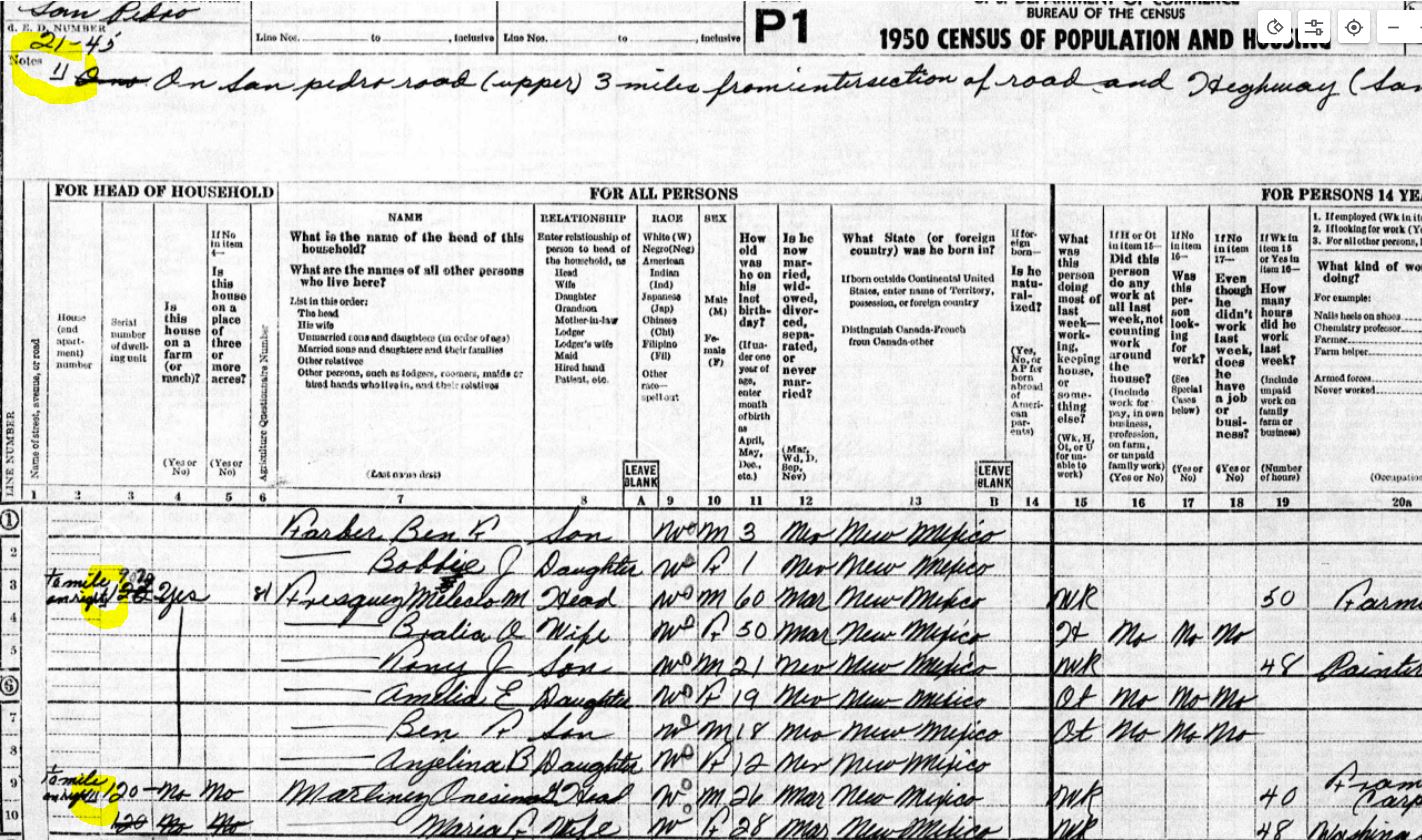 San Pedro
d. E. D. NUMBER
21-45
Line Nos. to , inclusive Line Nos. to , inclusive
P1
BUREAU OF THE CENSUS
1950 CENSUS OF POPULATION AND HOUSING
Notes
11 On San pedro road (upper) 3 miles from intersection of road and Heghway (San
FOR HEAD OF HOUSEHOLD
FOR ALL PERSONS
FOR PERSONS 14 YE
LINE NUMBER
Name of street, avenue, or road
House (and apart- ment) number
Serial number of dwell- ing unit
Is this house on a farm (or ranch)?
(Yes or No)
If No in item 4—
Is this house on a place of three or more acres?
(Yes or No)
Agriculture Questionnaire Number
NAME
What is the name of the head of this household?
What are the names of all other persons who live here?
List in this order:
The head
His wife
Unmarried sons and daughters (in order of age)
Married sons and daughters and their families
Other relatives
Other persons, such as lodgers, roomers, maids or hired hands who live in, and their relatives
(Last name first)
RELATIONSHIP
Enter relationship of person to head of the household, as
Head
Wife
Daughter
Grandson
Mother-in-law
Lodger
Lodger's wife
Maid
Hired hand
Patient, etc.
LEAVE BLANK
RACE
White (W)
Negro(Neg)
American Indian (Ind)
Japanese (Jap)
Chinese (Chi)
Filipino (Fil)
Other race— spell out
SEX
Male (M)
Fe- male (F)
How old was he on his last birth- day?
(If un- der one year of age, enter month of birth as April, May, Dec., etc.)
Is he now mar- ried, wid- owed, divor- ced, sepa- rated, or never mar- ried?
(Mar, Wd, D, Sep, Nev)
What State (or foreign country) was he born in?
If born outside Continental United States, enter name of Territory, possession, or foreign country
Distinguish Canada-French from Canada-other
LEAVE BLANK
If for- eign born—
Is he natu- ral- ized?
(Yes, No, or AP for born abroad of Ameri- can par- ents)
What was this person doing most of last week— work- ing, keeping house, or some- thing else?
(Wk, H, Ot, or U for un- able to work)
If H or Ot in item 15—
Did this person do any work at all last week, not counting work around the house?
(Include work for pay, in own business, profession, on farm, or unpaid family work)
(Yes or No)
If No in item 16—
Was this per- son look- ing for work?
(See Special Cases below)
(Yes or No)
If No in item 17—
Even though he didn't work last week, does he have a job or busi- ness?
(Yes or No)
If Wk in item 15 or Yes in item 16—
How many hours did he work last week?
(Include unpaid work on family farm or business)
(Number of hours)
1. If employed (Wk in ite
2. If looking for work (Y
3. For all other persons,
What kind of wo
doing?
For example:
Nails heels on shoes
Chemistry professor
Farmer
Farm helper
Armed forces
Never worked
(Occupation
1 2 3 4 5 6 7 8 A 9 10 11 12 13 B 14 15 16 17 18 19 20a
1 Farber Ben F Son W M 3 Nev New Mexico
2 Bobbie J Daughter W F 1 Nev New Mexico
3 to mile on right Yes Fresquez Melecio M Head W M 60 Mar New Mexico WK 50 Farm
4 Wife W F 50 Mar New Mexico H No No No
5 Son W M 21 Nev New Mexico WK 48 Painter
6 Amelia E Daughter W F 19 Nev New Mexico Ot No No No
7 Ben F Son W M 18 Nev New Mexico Ot No No No
8 Angelina B Daughter W F 12 Nev New Mexico
9 to mile on right 120 No No Martinez Onesimo Head W M 26 Mar New Mexico WK 40 Fram Carp
10 120 No No Maria F Wife W F 28 Mar New Mexico WK 48